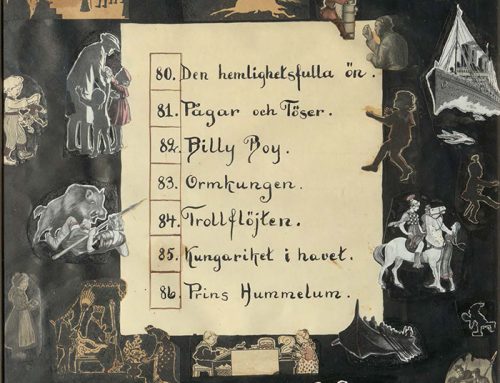 80. Den hemlighetsfulla ön.
81. Pågar och Töser.
82. Billy Boy.
83. Ormkungen.
84. Trollflöjten.
85. Kungariket i havet.
86. Prins Hummelum.